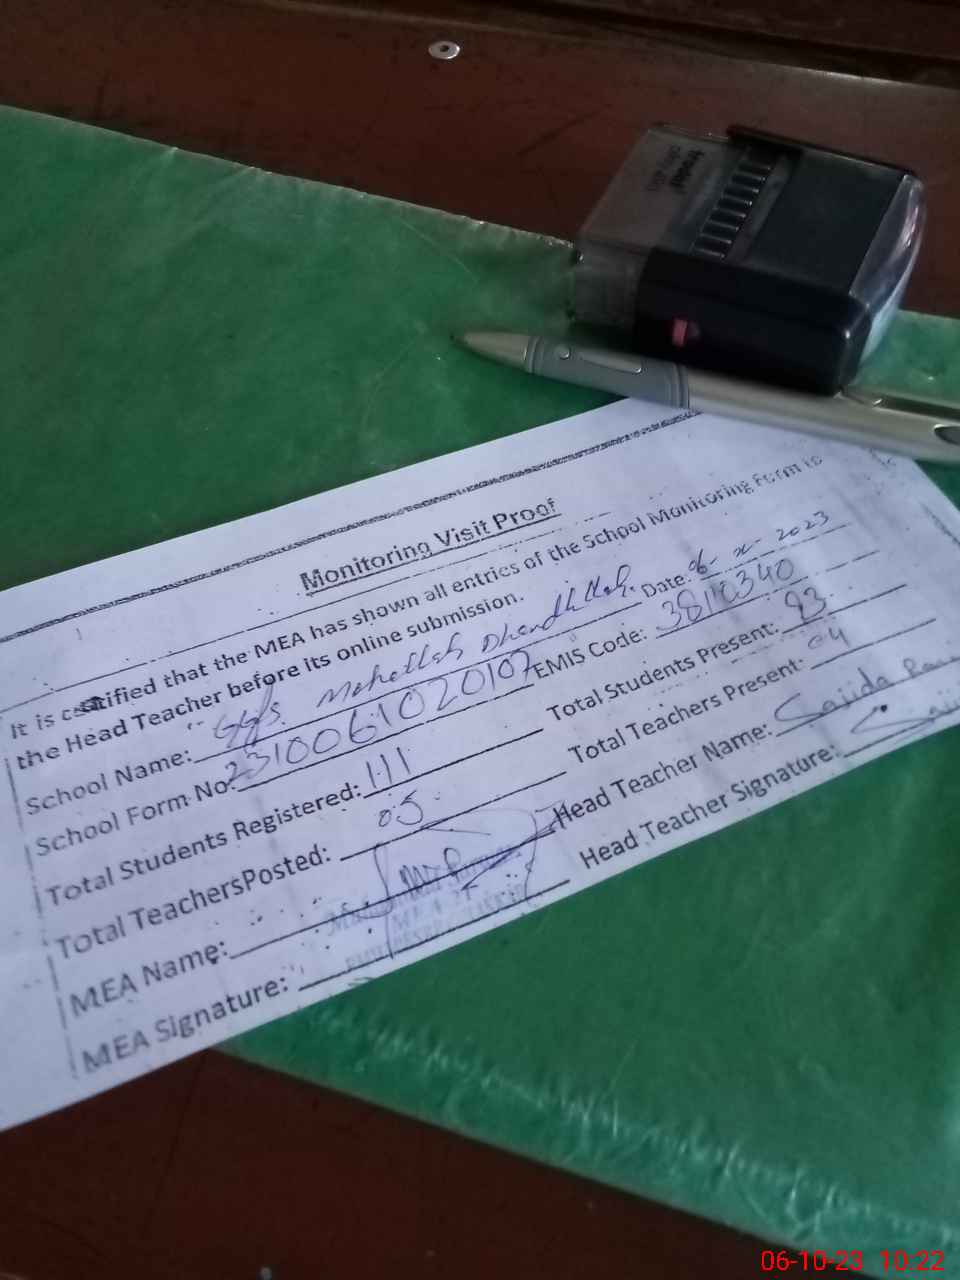 Monitoring Visit Proof
It is certified that the MEA has shown all entries of the School Monitoring Form to
the Head Teacher before its online submission.
School Name: Mohallah Date: 06-x-2023
School Form No: 231006102010 EMIS Code: 38110340
Total Students Registered: 111 Total Students Present: 83
Total TeachersPosted: 05 Total Teachers Present: 04
MEA Name: Head Teacher Name: Sajida
MEA Signature: Head Teacher Signature:
MEA
trodat
06-10-23 10:22